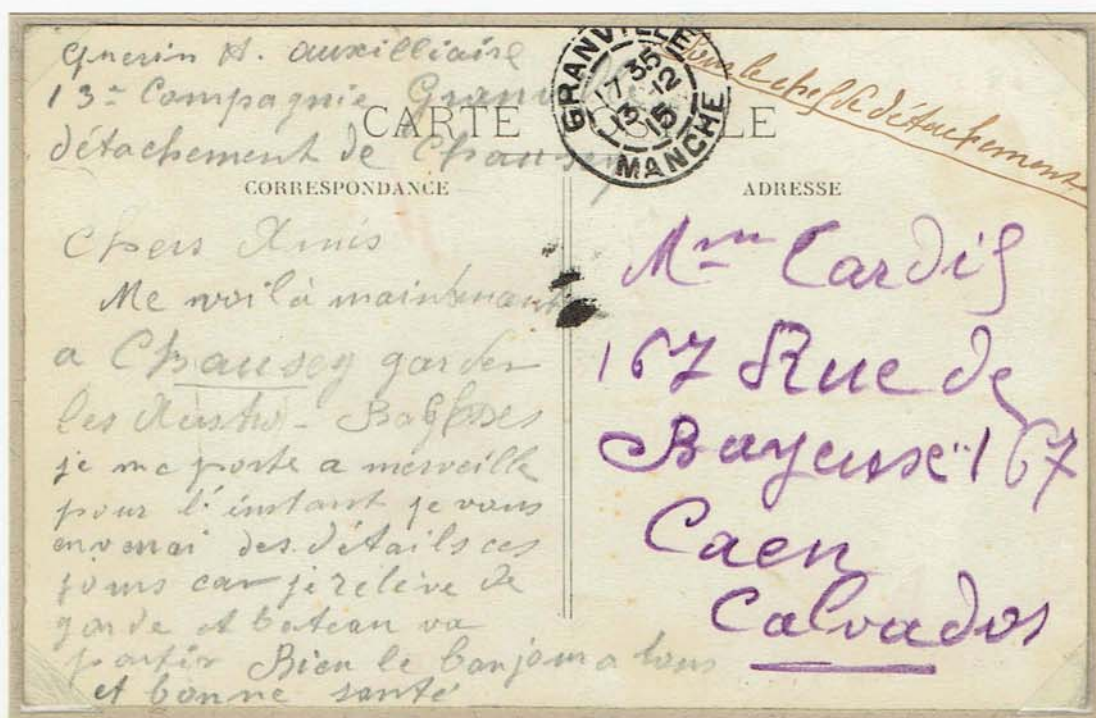 Guerin H. auxilliaire
13e Compagnie Granville
détachement de Chausey
CARTE POSTALE
GRANVILLE
17 35
13-12
15
MANCHE
le chef de détachement
CORRESPONDANCE
Chers Amis
Me voilà maintenant
a Chausey garder
les Austro-Boches
je me porte a merveille
pour l'instant je vous
enverrai des détails ces
jours car je relève de
garde et bateau va
partir Bien le bonjour a tous
et bonne santé
ADRESSE
Mme Cardif
167 Rue de
Bayeux 167
Caen
Calvados